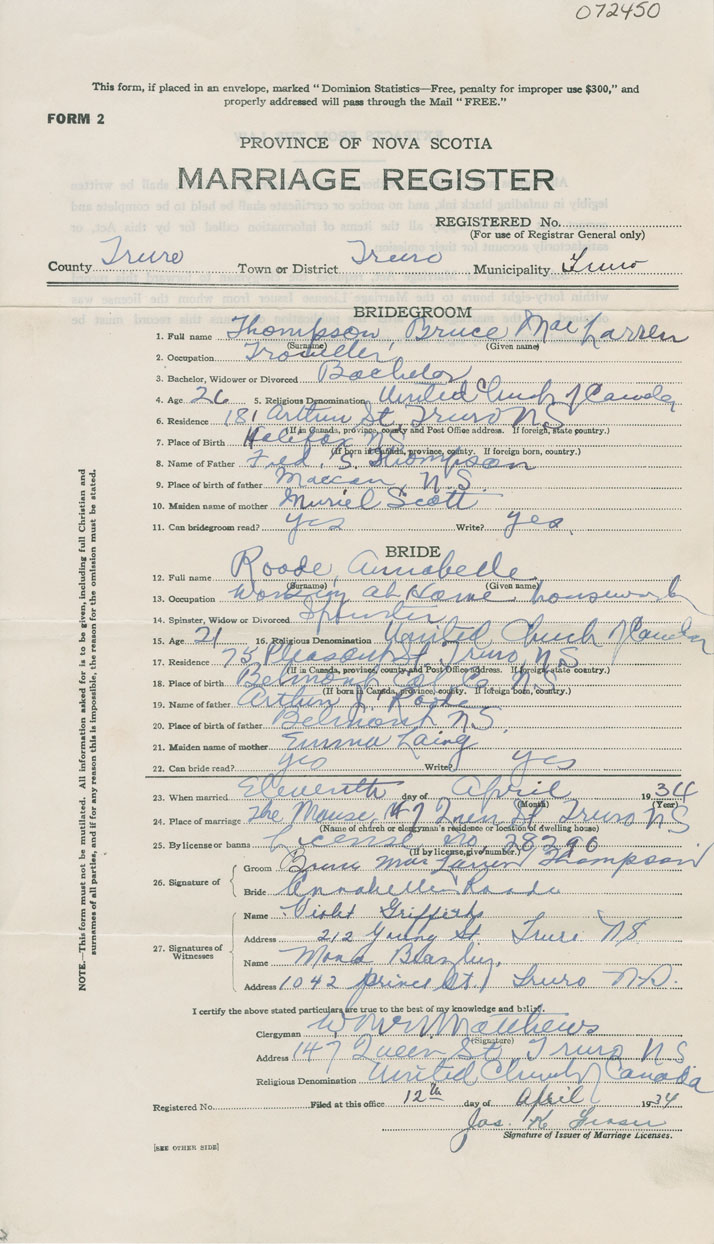 072450
This form, if placed in an envelope, marked "Dominion Statistics—Free, penalty for improper use $300," and
properly addressed will pass through the Mail "FREE."
FORM 2
PROVINCE OF NOVA SCOTIA
MARRIAGE REGISTER
REGISTERED No.
(For use of Registrar General only)
County Truro Town or District Truro Municipality Truro
BRIDEGROOM
1. Full name Thompson, Bruce Mac Larren
(Surname) (Given name)
2. Occupation Traveller
3. Bachelor, Widower or Divorced Bachelor
4. Age 26 5. Religious Denomination United Church of Canada
6. Residence 181 Arthur St, Truro N.S
(If in Canada, province, county and Post Office address. If foreign, state country.)
7. Place of Birth Halifax N.S
(If born in Canada, province, county. If foreign born, country.)
8. Name of Father Fred. S. Thompson
9. Place of birth of father Maccan, N.S.
10. Maiden name of mother Muriel Scott
11. Can bridegroom read? yes Write? yes.
BRIDE
12. Full name Roode, Annabelle
(Surname) (Given name)
13. Occupation Working at Home housework
14. Spinster, Widow or Divorced Spinster
15. Age 21 16. Religious Denomination United Church of Canada
17. Residence 75 Pleasant St, Truro, N.S
(If in Canada, province, county and Post Office address. If foreign, state country.)
18. Place of birth Belmont Col. Co. N.S
(If born in Canada, province, county. If foreign born, country.)
19. Name of father Arthur J. Roode
20. Place of birth of father Belmont N.S.
21. Maiden name of mother Emma Laing
22. Can bride read? yes Write? yes
23. When married Eleventh day of April 1934
(Month) (Year)
24. Place of marriage The Manse, 147 Queen St Truro N S
(Name of church or clergyman's residence or location of dwelling house)
25. By license or banns License no 28290
(If by license, give number.)
26. Signature of
Groom Bruce MacLarren Thompson
Bride Annabelle Roode
27. Signatures of Witnesses
Name Violet Griffiths
Address 212 Young St. Truro N.S.
Name Mona
Address 1042 prince St. Truro N.S.
I certify the above stated particulars are true to the best of my knowledge and belief.
Clergyman Matthews
(Signature)
Address 147 Queen St, Truro N S
Religious Denomination United Church of Canada
Registered No. Filed at this office 12th day of April 1934
Jas. K. Fraser
Signature of Issuer of Marriage Licenses.
[SEE OTHER SIDE]
NOTE.—This form must not be mutilated. All information asked for is to be given, including full Christian and
surnames of all parties, and if for any reason this is impossible, the reason for the omission must be stated.